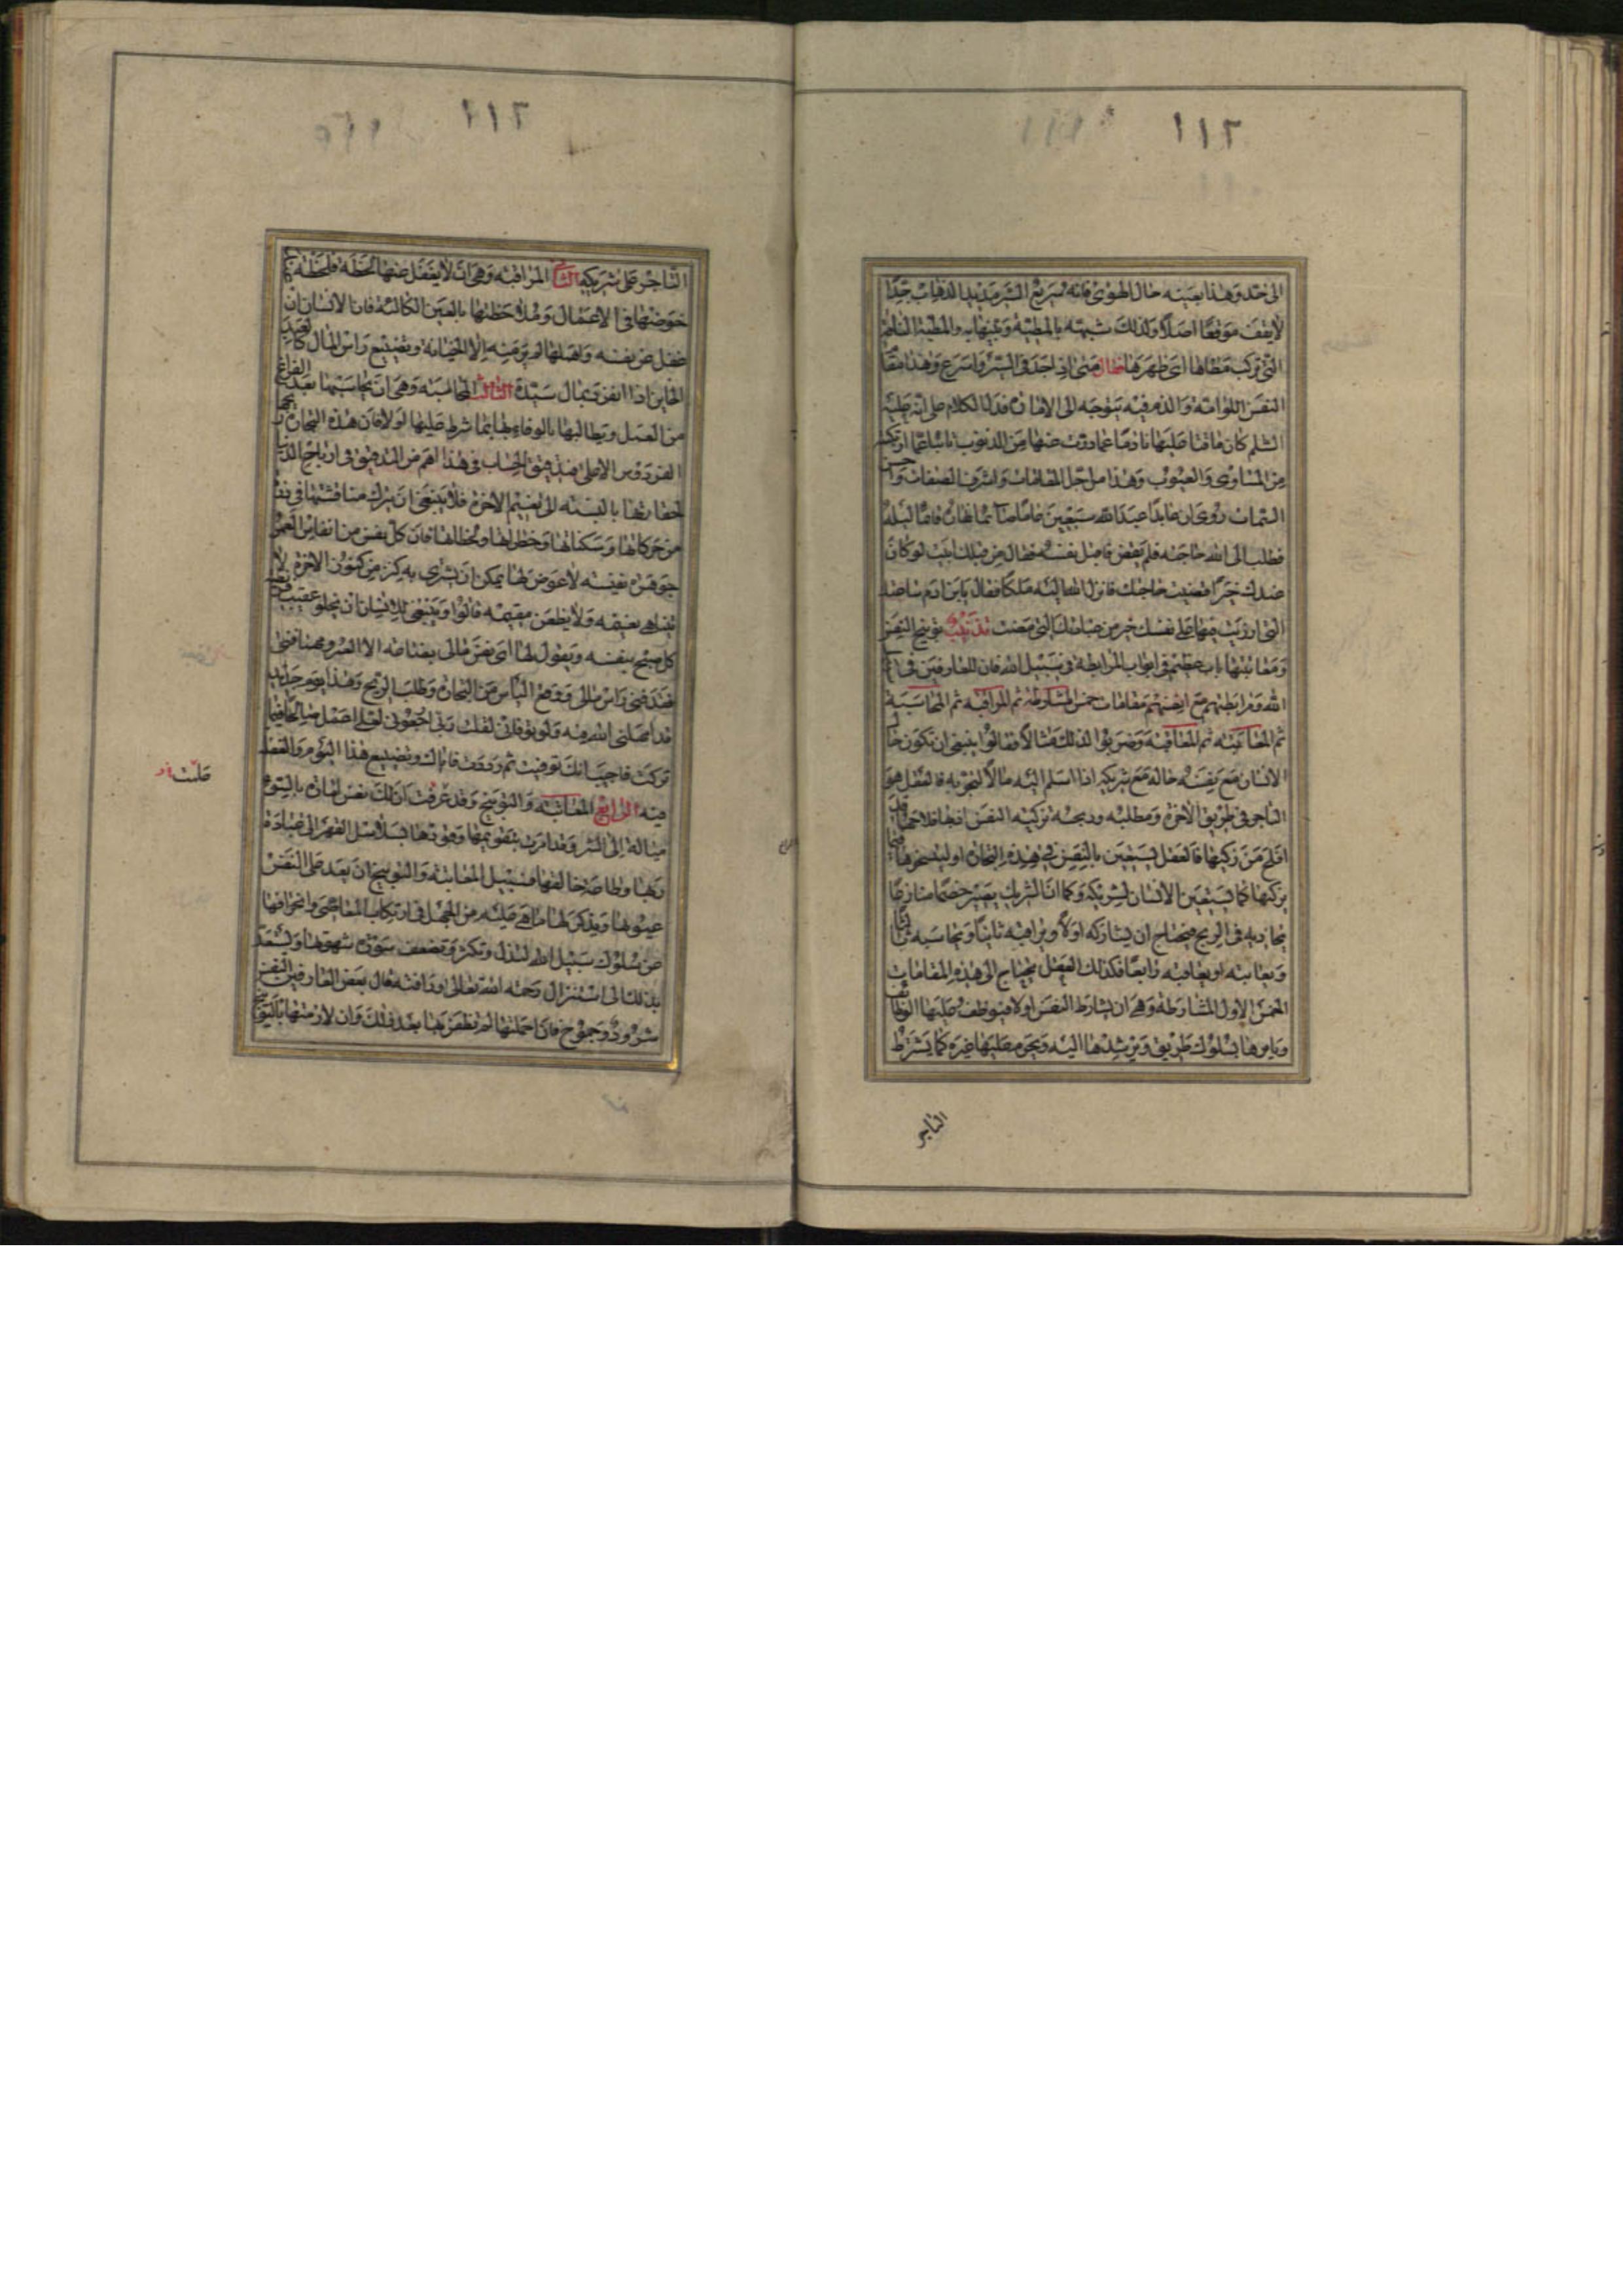 ١١٦
الى حد وهذا بعينه حال الهوى فانه سريع السير مديد الذهاب جدا
لا يقف موقفا اصلا ولذلك شبهه بالمطية وعينها به والمطية الناقة
التي تركب مطاها اى ظهرها يقال مطى اذا جد فى السير واسرع وهذا مقام
النفس اللوامة والذم فيه يتوجه الى الامارة فدلنا الكلام على انه عليه
السلم كان عليها نادما عما دون عنها من الذنوب
من المساوى والعيوب وهذا من اجل المقامات واشرف الصفات واحسن
السمات روى ان عابدا عبد الله سبعين عاما صائما نهاره قائما ليله
فطلب الى الله حاجة فلم يقض فاقبل نفسه فقال من قبلك اتيت لو كان
عندك خيرا قضيت حاجتك فانزل الله اليه ملكا فقال يابن ادم ساعتك
التي ازريت فيها على نفسك خير من عبادتك التي مضت تذنيب توبيخ النفس
ومعاتبتها باب عظيم فى ابواب المرابطة فى سبيل الله فان للعارفين فى
الله ومرابطتهم مع انفسهم مقامات خمس المشارطة ثم المراقبة ثم المحاسبة
ثم المعاتبة ثم المعاقبة وضربوا لذلك مثالا فقالوا ينبغى ان تكون حال
الانسان مع نفسه حاله مع شريكه اذا اسلم اليه مالا ليتجر به فالعقل هو
التاجر فى طريق الاخرة ومطلبه وربحه تزكية النفس اذ بها فلاحها قد
افلح من زكيها فالعقل يستعين بالنفس فى هذه التجارة اوليستخرها فيما
يزكيها كما يستعين الانسان بشريكه وكما ان الشريك يصير خصما منازعا
يجاذبه فى الربح فيحتاج ان يشاركه اولا ويراقبه ثانيا ويحاسبه ثالثا
ويعاتبه او يعاقبه رابعا فكذلك العقل يحتاج الى هذه المقامات
الخمس الاول المشارطة وهى ان يشارط النفس اولا فيوظف عليها الوظائف
ويامرها بسلوك طريق ويرشدها اليه ويحرم عليها غيره كما يشترط
التاجر
١١٦
التاجر على شريكه الثانى المراقبة وهى ان لا يغفل عنها لحظة فلحظة
خوضها فى الاعمال وملاحظتها بالعين الكالئة فان الانسان ان
غفل عن نفسه واهملها لم ير منه الا الخيانة وتضييع راس المال كالعبد
الخاين اذا انفرد بمال سيده الثالث المحاسبة وهى ان يحاسبها بعد الفراغ
من العمل ويطالبها بالوفاء لها بما شرط عليها اولا فان هذه التجارة ربحها
الفردوس الاعلى فتدقيق الحساب فى هذا اهم من التدقيق فى ارباح الدنيا
لحقارتها بالنسبة الى نعيم الاخرة فلا ينبغى ان يترك مناقشتها فى
من حركاتها وسكناتها وخطراتها ولحظاتها فان كل نفس من انفاس العمر
جوهرة نفيسة لا عوض لها يمكن ان يشترى به كنز من كنوز الاخرة لا
يتناهى نعيمه ولا يظعن مقيمه قالوا وينبغى للانسان ان يخلو عقيب
كل صبح بنفسه ويقول لها اى نفس مالى بضاعة الا العمر ومهما فنى
فقد فنى راس مالى ووقع الياس من التجارة وطلب الربح وهذا يوم جديد
قد امهلنى الله فيه ولو توفانى لقلت رب ارجعونى لعلى اعمل صالحا فيما
تركت فاحسبى انك توفيت ثم رددت فاياك وتضييع هذا اليوم والغفلة
فيه الرابع المعاتبة والتوبيخ وقد عرفت ان لك نفس امارة بالسوء
ميالة الى الشر وقد امرت بتقويمها وقودها بسلاسل القهر الى عبادة
ربها وطاعة خالقها فسبيل المعاتبة والتوبيخ ان يعد على النفس
عيوبها ويذكر لها ما هى عليه من الجهل فى ارتكاب المعاصى وانحرافها
عن سلوك سبيل الله لتذل وتكثر وتضعف سورة شهوتها وليستعد
بذلك الى استنزال رحمة الله تعالى ورأفته قال بعض العارفين النفس
شرود وجموح فان اهملتها لم تظفر بها بعد ذلك وان لازمتها بالتوبيخ